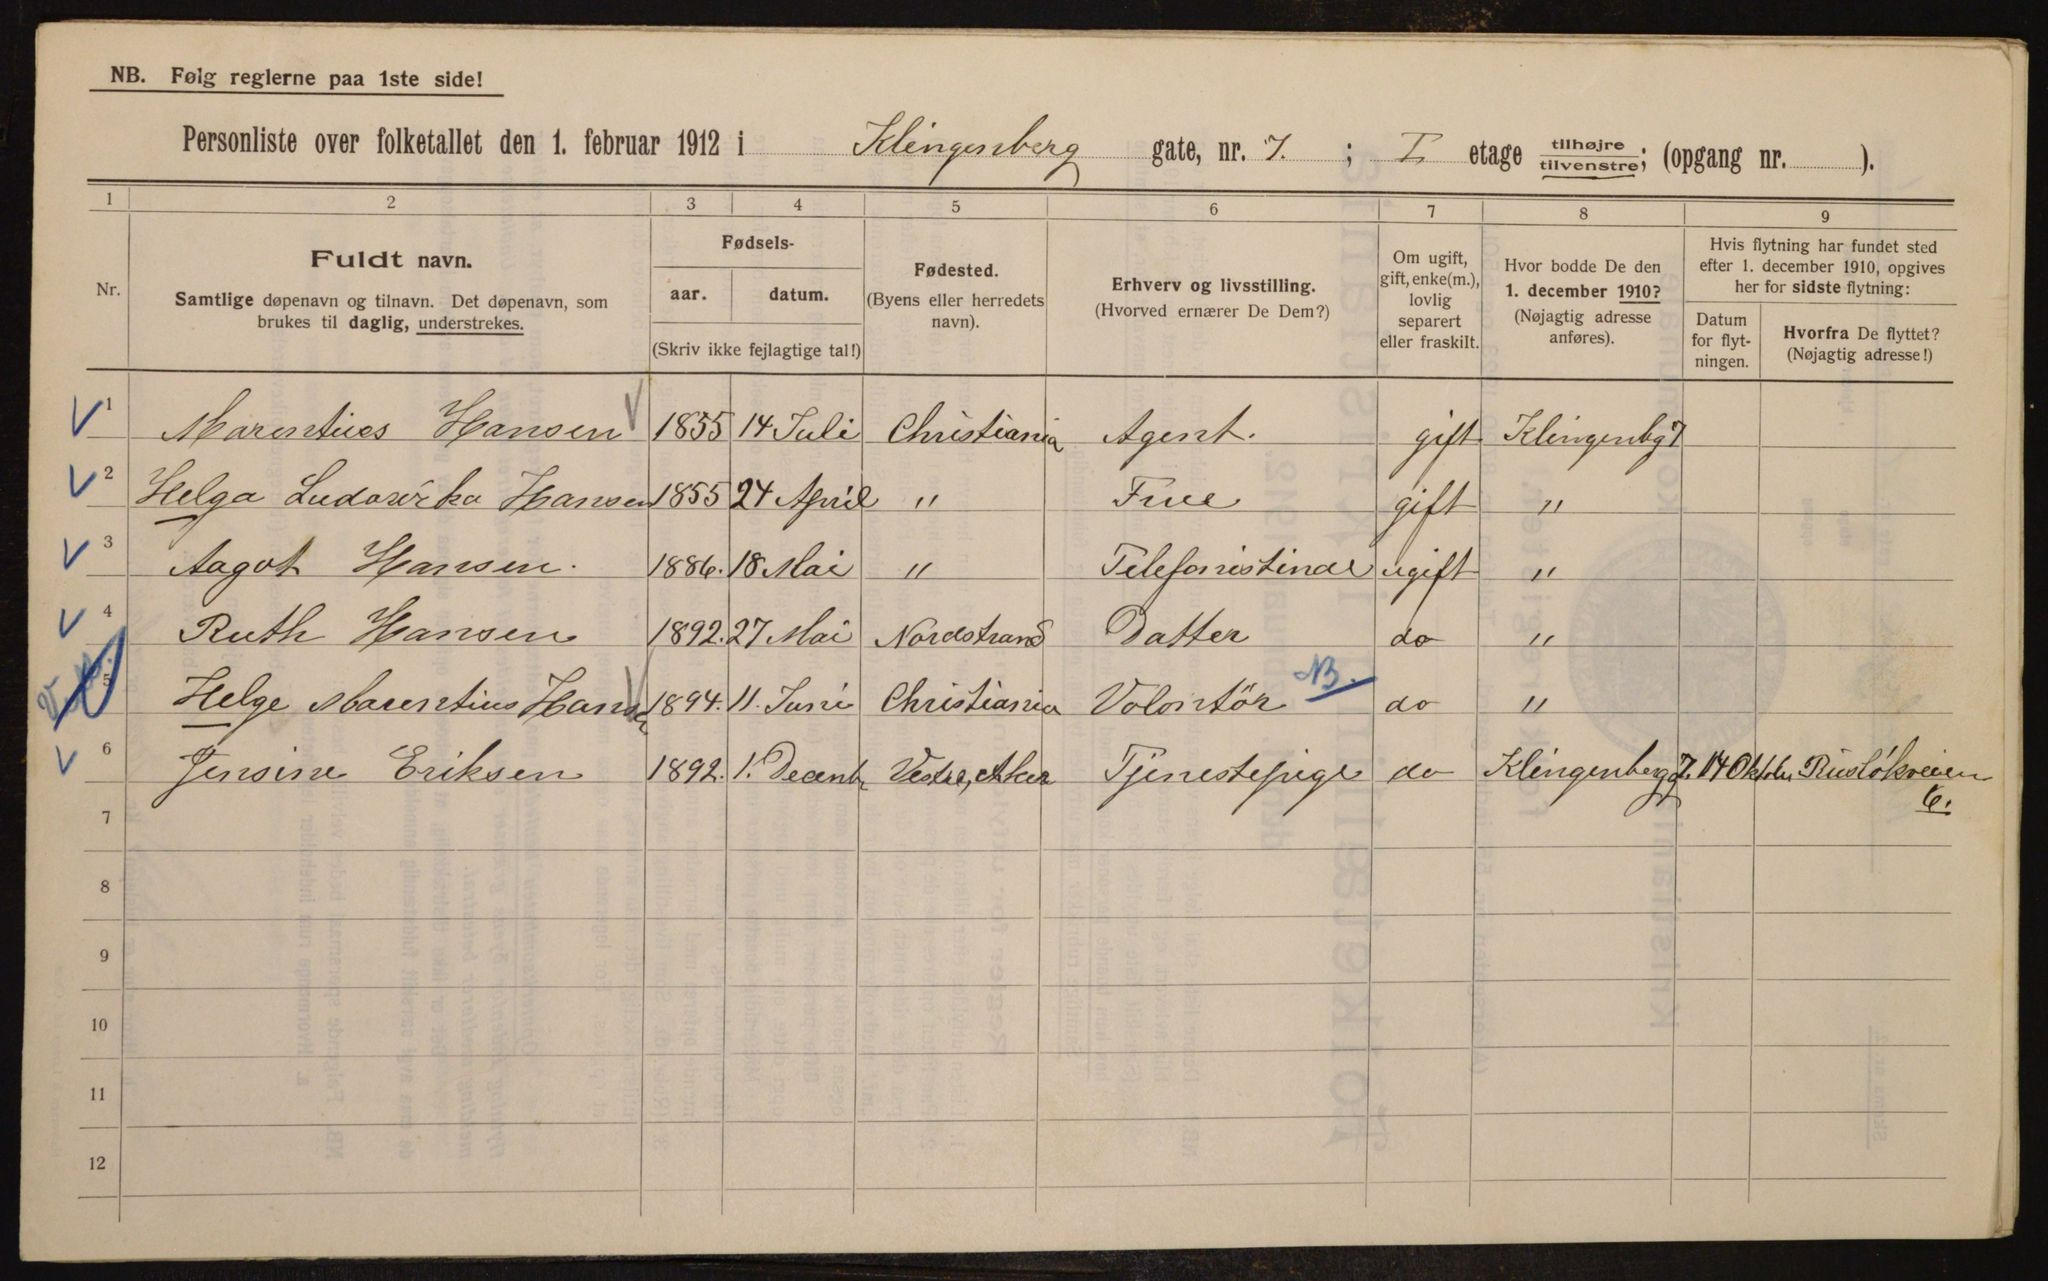 NB. Følg reglerne paa 1ste side!
Personliste over folketallet den 1. februar 1912 i Klingenberg gate, nr. 7. ; I etage tilhøjre tilvenstre; (opgang nr. ).
1 2 3 4 5 6 7 8 9
Nr.
Fuldt navn.
Samtlige døpenavn og tilnavn. Det døpenavn, som
brukes til daglig, understrekes.
Fødsels-
aar. datum.
(Skriv ikke fejlagtige tal!)
Fødested.
(Byens eller herredets
navn).
Erhverv og livsstilling.
(Hvorved ernærer De Dem?)
Om ugift,
gift, enke(m.),
lovlig
separert
eller fraskilt.
Hvor bodde De den
1. december 1910?
(Nøjagtig adresse
anføres).
Hvis flytning har fundet sted
efter 1. december 1910, opgives
her for sidste flytning:
Datum
for flyt-
ningen.
Hvorfra De flyttet?
(Nøjagtig adresse!)
1 Marentius Hansen 1855 14 Juli Christiania Agent. gift Klingenbg 7
2 Helga Ludovika Hansen 1855 24 April " Frue gift "
3 Aagot Hansen. 1886. 18 Mai " Telefonistinde ugift "
4 Ruth Hansen 1892. 27 Mai Nordstrand Datter do "
5 Helge Marentius Hansen 1894. 11. Juni Christiania Volontör NB. do "
6 Jensine Eriksen 1892. 1. Decembr Vestre, Aker Tjenestepige do Klingenbergg 7. 14 Oktobr Rusløkveien
6.
7
8
9
10
11
12